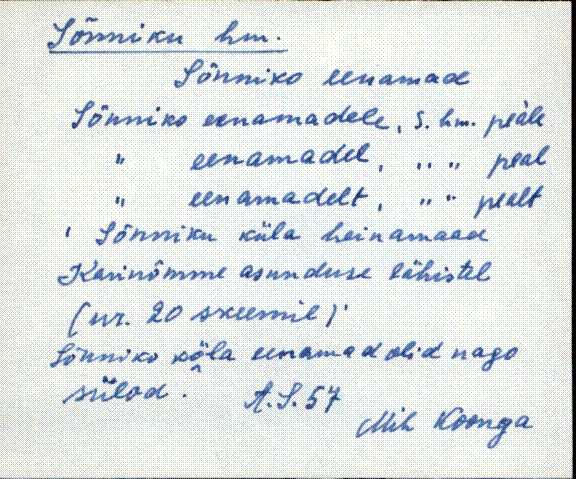 Sõnniku hm.
Sõnniko eenamad
Sõnniko eenamadele, S. hm. peäle
" eenamadel, " " peal
" eenamadelt, " " pealt
' Sõnniku küla heinamaad
Karinõmme asunduse lähistel
(nr. 20 skeemil)'
Sõnniko köla eenamad olid nago
siilod. A.S. 57
Mih Koonga